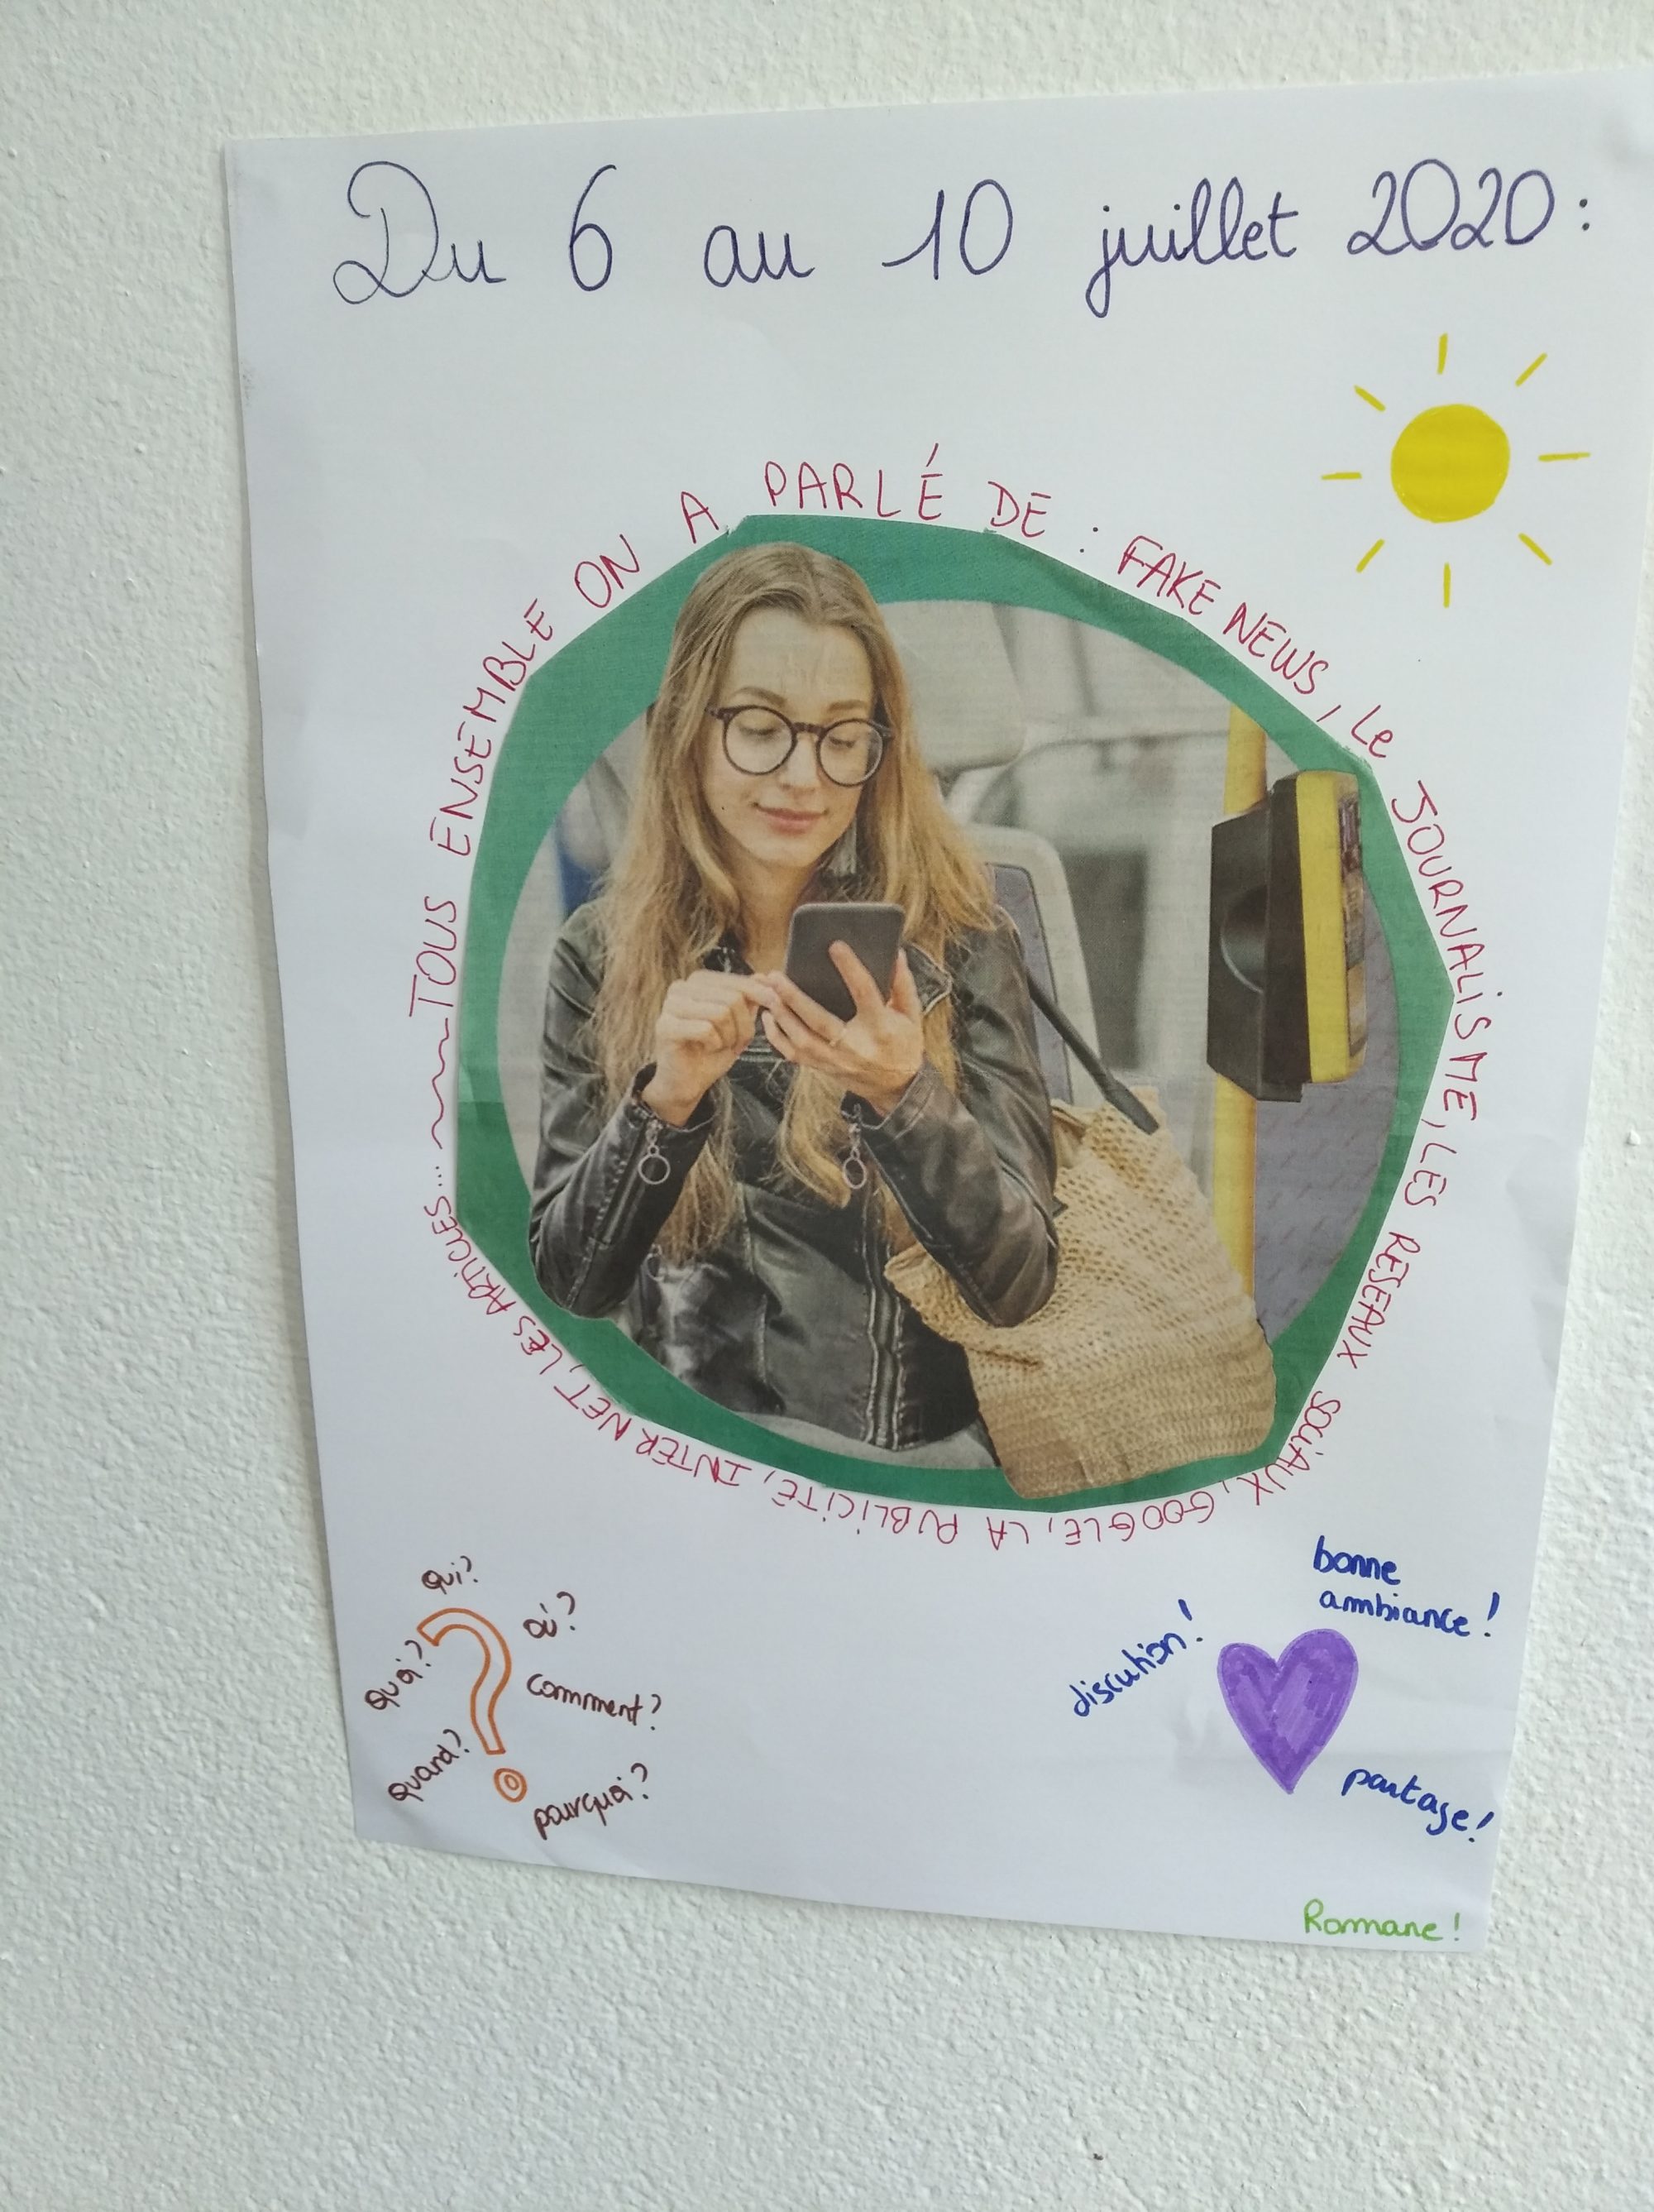 Du 6 au 10 juillet 2020 :
TOUS ENSEMBLE ON A PARLÉ DE : FAKE NEWS, Le JOURNALISME, LES RESEAUX SOCIAUX, GOOGLE, LA PUBLICITÉ, INTERNET, LES ARTICLES...
qui?
où?
quoi?
comment?
quand?
pourquoi?
bonne
ambiance!
discution!
partage!
Romane!